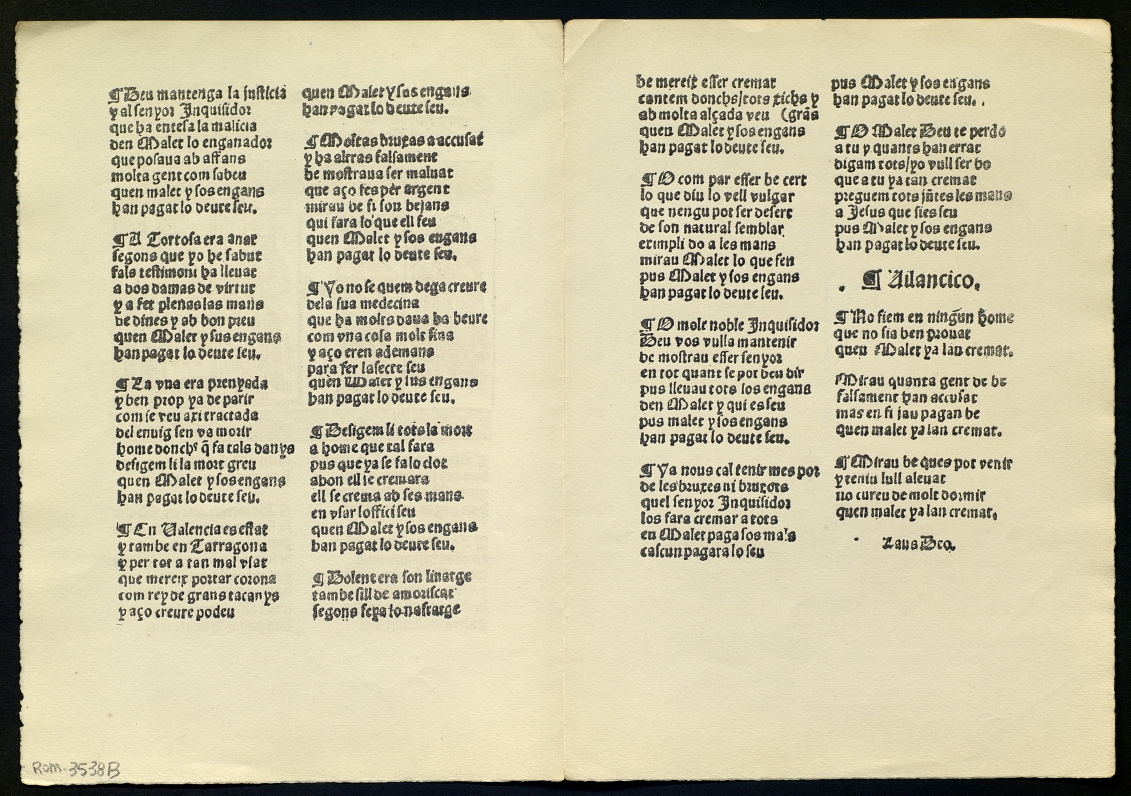 ¶ Deu mantenga la justicia
y al senyor Inquisidor
que ha entesa la malicia
den Malet lo enganador
que posaua ab affans
molta gent com sabeu
quen malet y sos engans
han pagat lo deute seu.
¶ A Tortosa era anat
segons que yo he sabut
fals testimoni ha lleuat
a dos damas de virtut
y a fet plenas las mans
de dines y ab bon preu
quen Malet y sus engans
han pagat lo deute seu.
¶ La vna era prenyada
y ben prop ya de parir
com se veu axi tractada
del enuig sen va morir
home donchs q̃ fa tals danys
desigem li la mort greu
quen Malet y sos engans
han pagat lo deute seu.
¶ En Valencia es estat
y tambe en Tarragona
y per tot a tan mal vsat
que mereix portar corona
com rey de grans tacanys
y aço creure podeu
quen Malet y sos engans
han pagat lo deute seu.
¶ Moltas bruxas a accusat
y ha altras falsament
be mostraua ser maluat
que aço fes per argent
mirau be si son bejans
qui fara lo que ell feu
quen Malet y sos engans
han pagat lo deute seu.
¶ Yo no se quem dega creure
dela sua medecina
que ha molts daua ha beure
com vna cosa molt fina
y aço eren ademans
para fer la secte seu
quen Malet y sus engans
han pagat lo deute seu.
¶ Desigem li tots la mort
a home que tal fara
pus que ya se fa lo clot
abon ell se cremara
ell se crema ab ses mans
en vsar loffici seu
quen Malet y sos engans
han pagat lo deute seu.
¶ Dolent era son linatge
tambe fill de amoriscat
segons feya lo nastatge
be mereix esser cremat
cantem donchs/tots richs y
ab molta alçada veu (grãs
quen Malet y sos engans
han pagat lo deute seu.
¶ O com par esser be cert
lo que diu lo vell vulgar
que nengu pot ser desert
de son natural semblar
etimpli do a les mans
mirau Malet lo que feu
pus Malet y sos engans
han pagat lo deute seu.
¶ O molt noble Inquisidor
Deu vos vulla mantenir
be mostrau esser senyor
en tot quant se pot deu dir
pus lleuau tots los engans
den Malet y qui es seu
pus malet y sos engans
han pagat lo deute seu.
¶ Ya nous cal tenir mes por
de les bruxes ni bruxots
quel senyor Inquisidor
los fara cremar a tots
en Malet paga sos mals
cascun pagara lo seu
pus Malet y sos engans
han pagat lo deute seu.
¶ O Malet Deu te perdo
a tu y quants han errat
digam tots/yo vull ser bo
que a tu ya tan cremat
preguem tots jũtes les mans
a Jesus que sies seu
pus Malet y sos engans
han pagat lo deute seu.
¶ Uilancico.
¶ No fiem en ningun home
que no sia ben prouat
quen Malet ya lan cremat.
Mirau quanta gent de be
falsament han accusat
mas en fi jau pagan be
quen malet ya lan cremat.
¶ Mirau be ques pot venir
y teniu lull aleuat
no cureu de molt dormir
quen malet ya lan cremat.
Laus Deo.
Rom-3538B